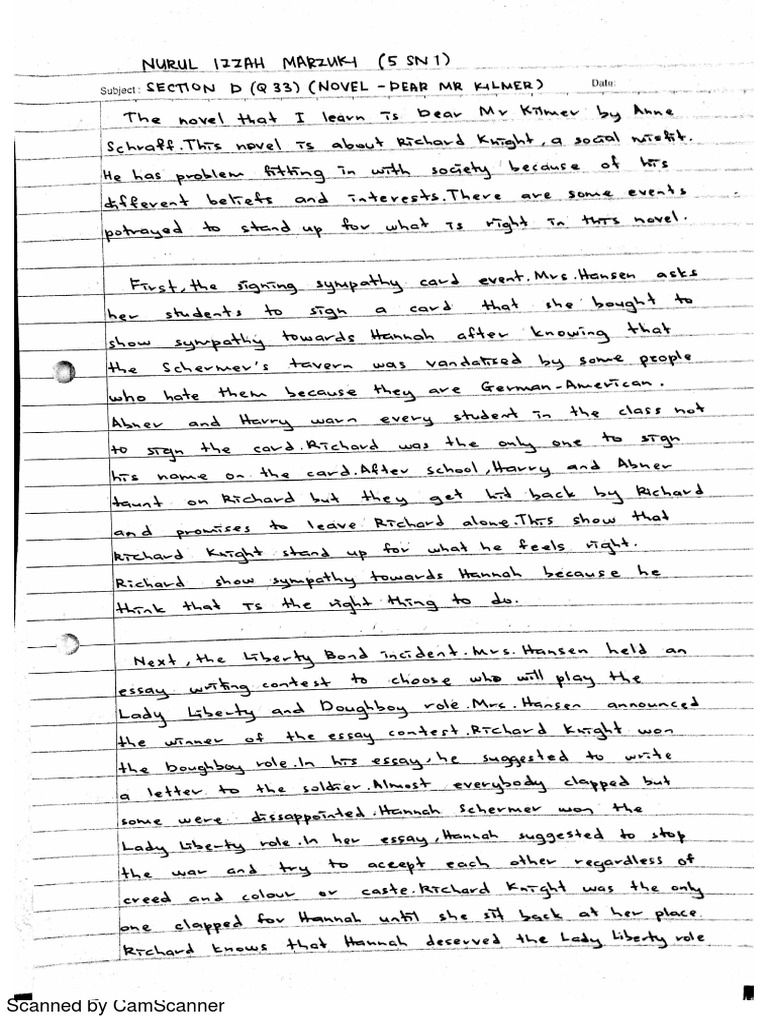 NURUL IZZAH MARZUKI (5 SN1)
Subject: SECTION D (Q 33) (NOVEL - DEAR MR KILMER) Date:
The novel that I learn is Dear Mr Kilmer by Anne
Schraff. This novel is about Richard Knight, a social misfit.
He has problem fitting in with society because of his
different beliefs and interests. There are some events
potrayed to stand up for what is right in this novel.
First, the signing sympathy card event. Mrs. Hansen asks
her students to sign a card that she bought to
show sympathy towards Hannah after knowing that
the Schermer's tavern was vandalised by some people
who hate them because they are German-American.
Abner and Harry warn every student in the class not
to sign the card. Richard was the only one to sign
his name on the card. After school, Harry and Abner
taunt on Richard but they get hid back by Richard
and promises to leave Richard alone. This show that
Richard Knight stand up for what he feels right.
Richard show sympathy towards Hannah because he
think that is the right thing to do.
Next, the Liberty Bond incident. Mrs. Hansen held an
essay writing contest to choose who will play the
Lady Liberty and Doughboy role. Mrs. Hansen announced
the winner of the essay contest. Richard Knight won
the Doughboy role. In his essay, he suggested to write
a letter to the soldier. Almost everybody clapped but
some were dissappointed. Hannah Schermer won the
Lady Liberty role. In her essay, Hannah suggested to stop
the war and try to accept each other regardless of
creed and colour or caste. Richard Knight was the only
one clapped for Hannah until she sit back at her place.
Richard knows that Hannah deserved the Lady Liberty role
Scanned by CamScanner